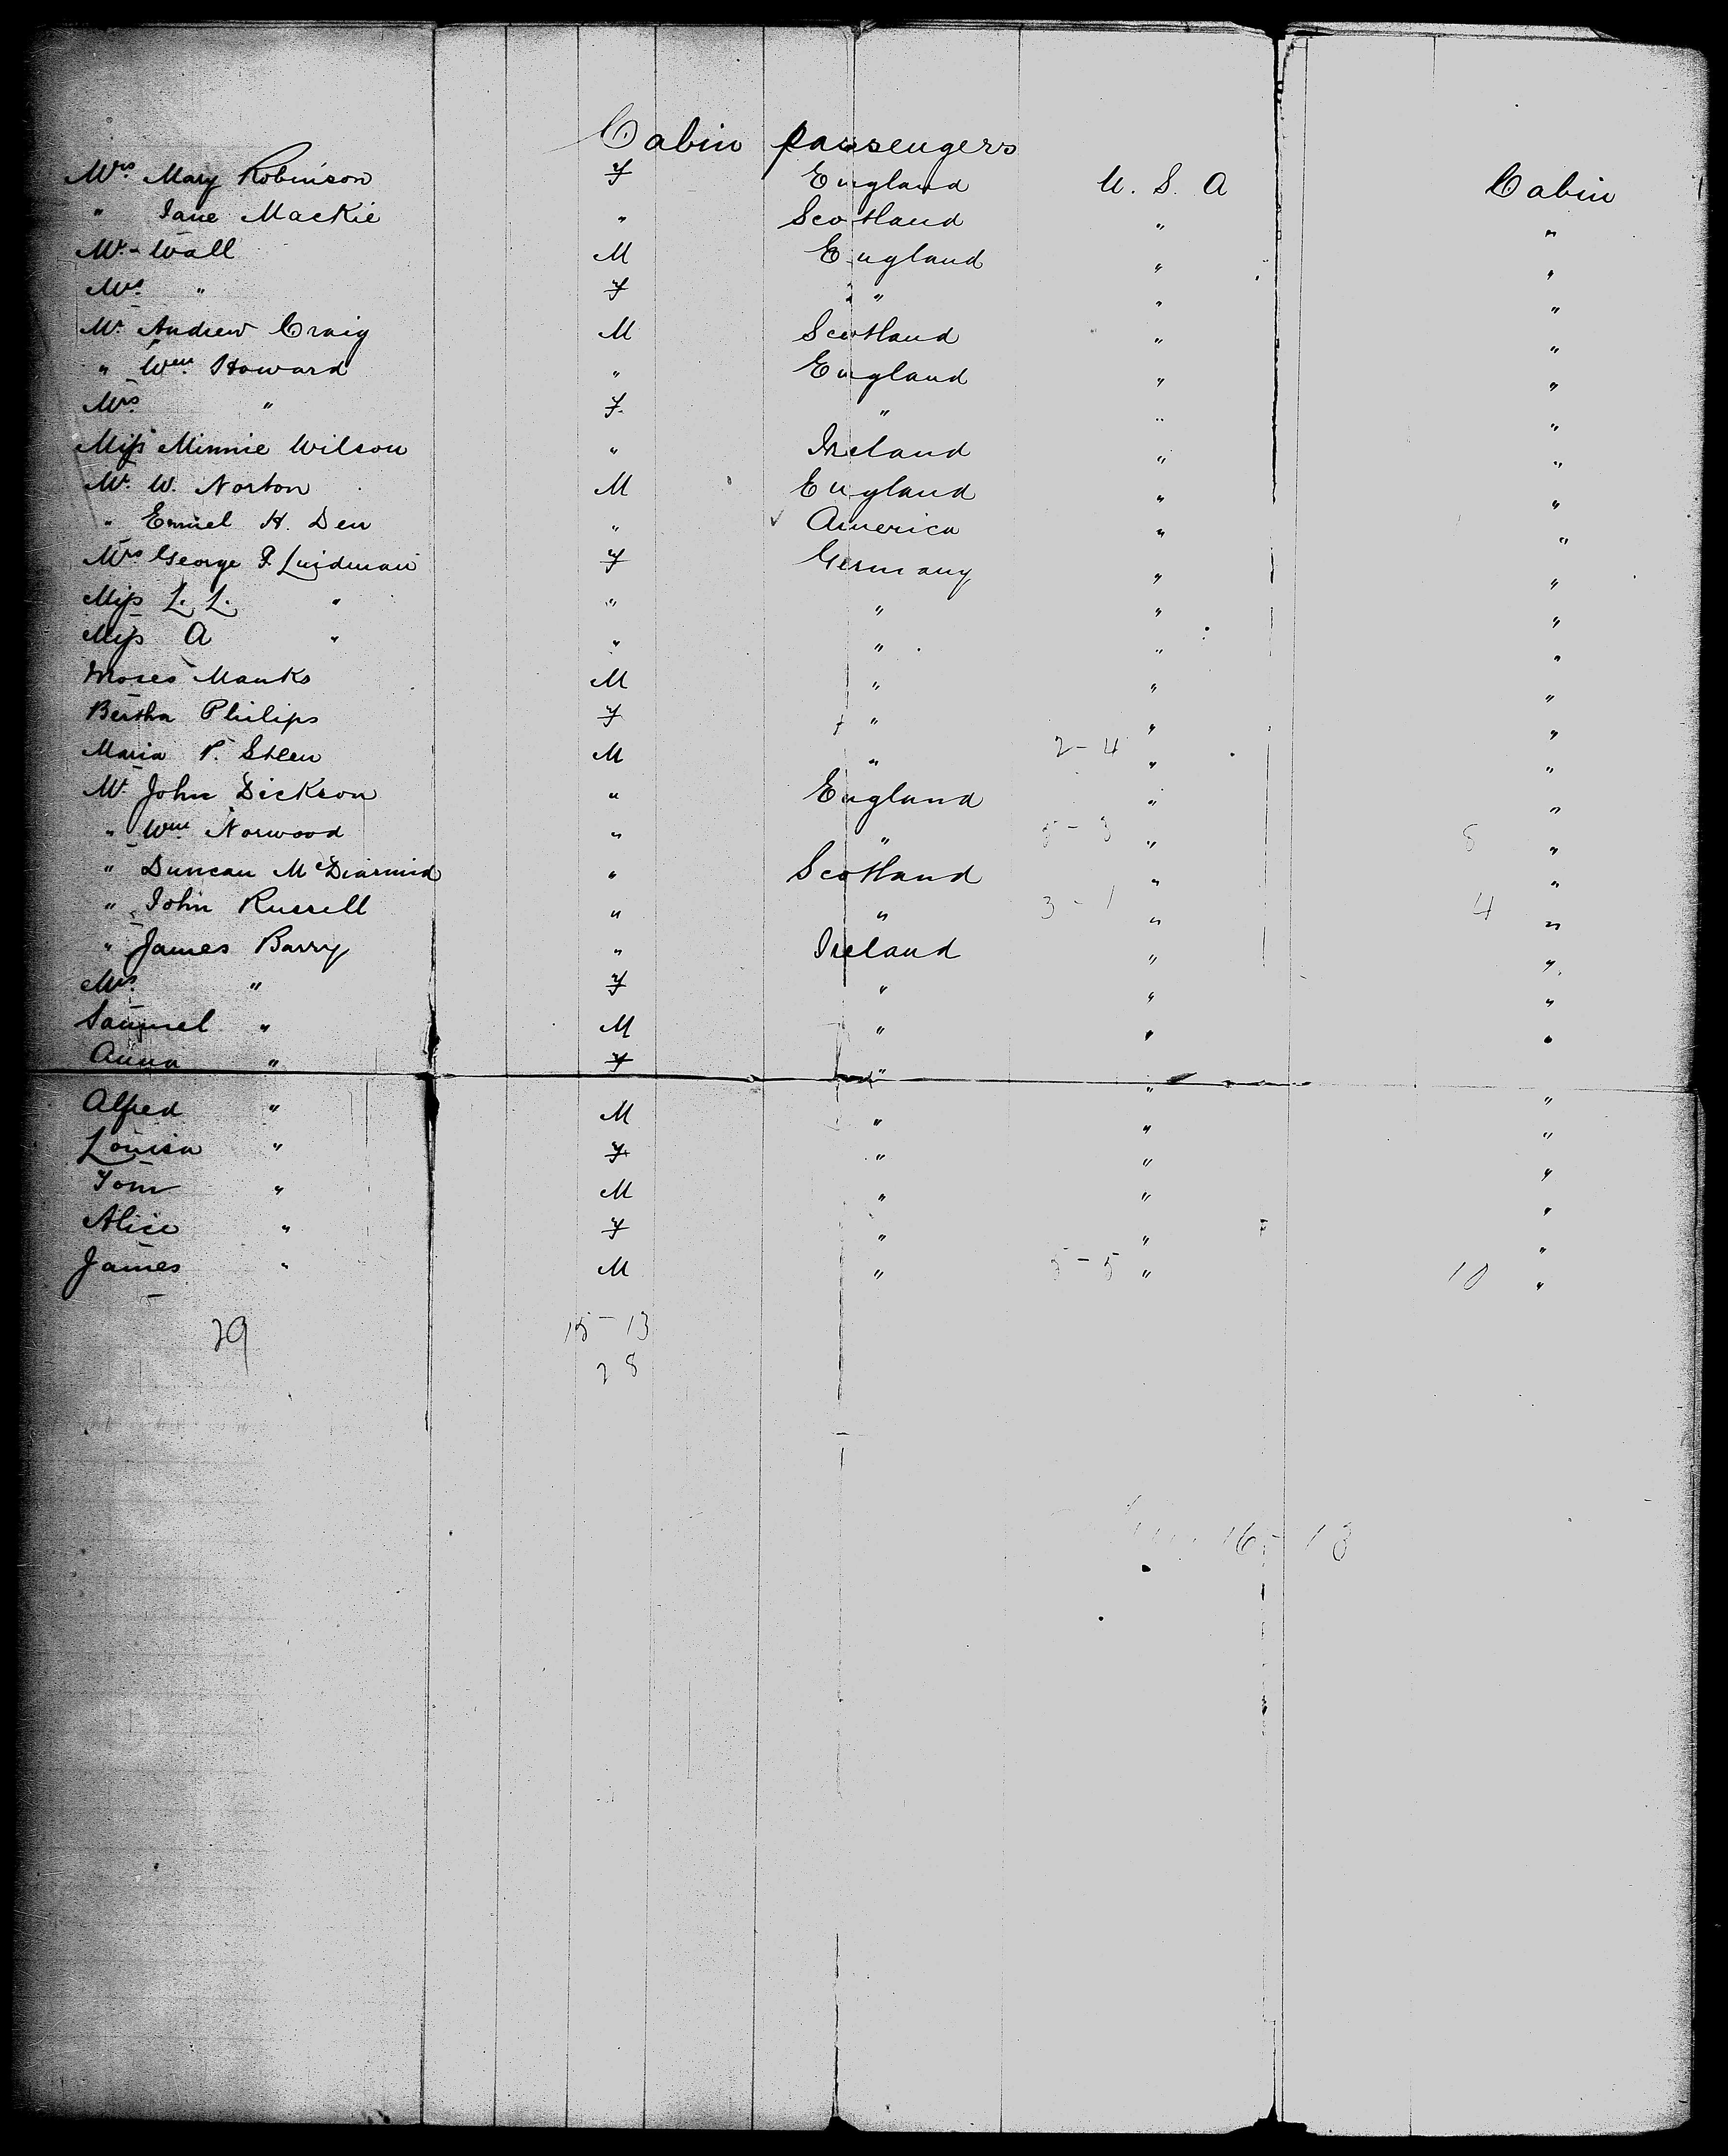 Cabin passengers
Mrs. Mary Robinson F England U. S. A Cabin
" Jane Mackie " Scotland " "
Mr. Wall M England " "
Mrs. " F " " "
Mr. Andrew Craig M Scotland " "
" Wm. Howard " England " "
Mrs. " F. " " "
Miss Minnie Wilson " Ireland " "
Mr. W. Norton M England " "
" Emiel H. Den " ✓ America " "
Mrs George F. Lindman F Germany " "
Miss L. L. " " " " "
Miss A " " " " "
Moses Manks M " " "
Bertha Philips F " " "
Maria P. Steen M " 2-4 " "
Mr. John Dickson " England " "
" Wm. Norwood " " 5-3 " 8 "
" Duncan McDiarmid " Scotland " "
" John Russell " " 3-1 " 4 "
" James Barry " Ireland " "
Mrs. " F " " "
Samuel " M " " "
Anna " F " " "
Alfred " M " " "
Louisa " F " " "
Tom " M " " "
Alice " F " " "
James " M " 5-5 " 10 "
29 15-13
28
16-13